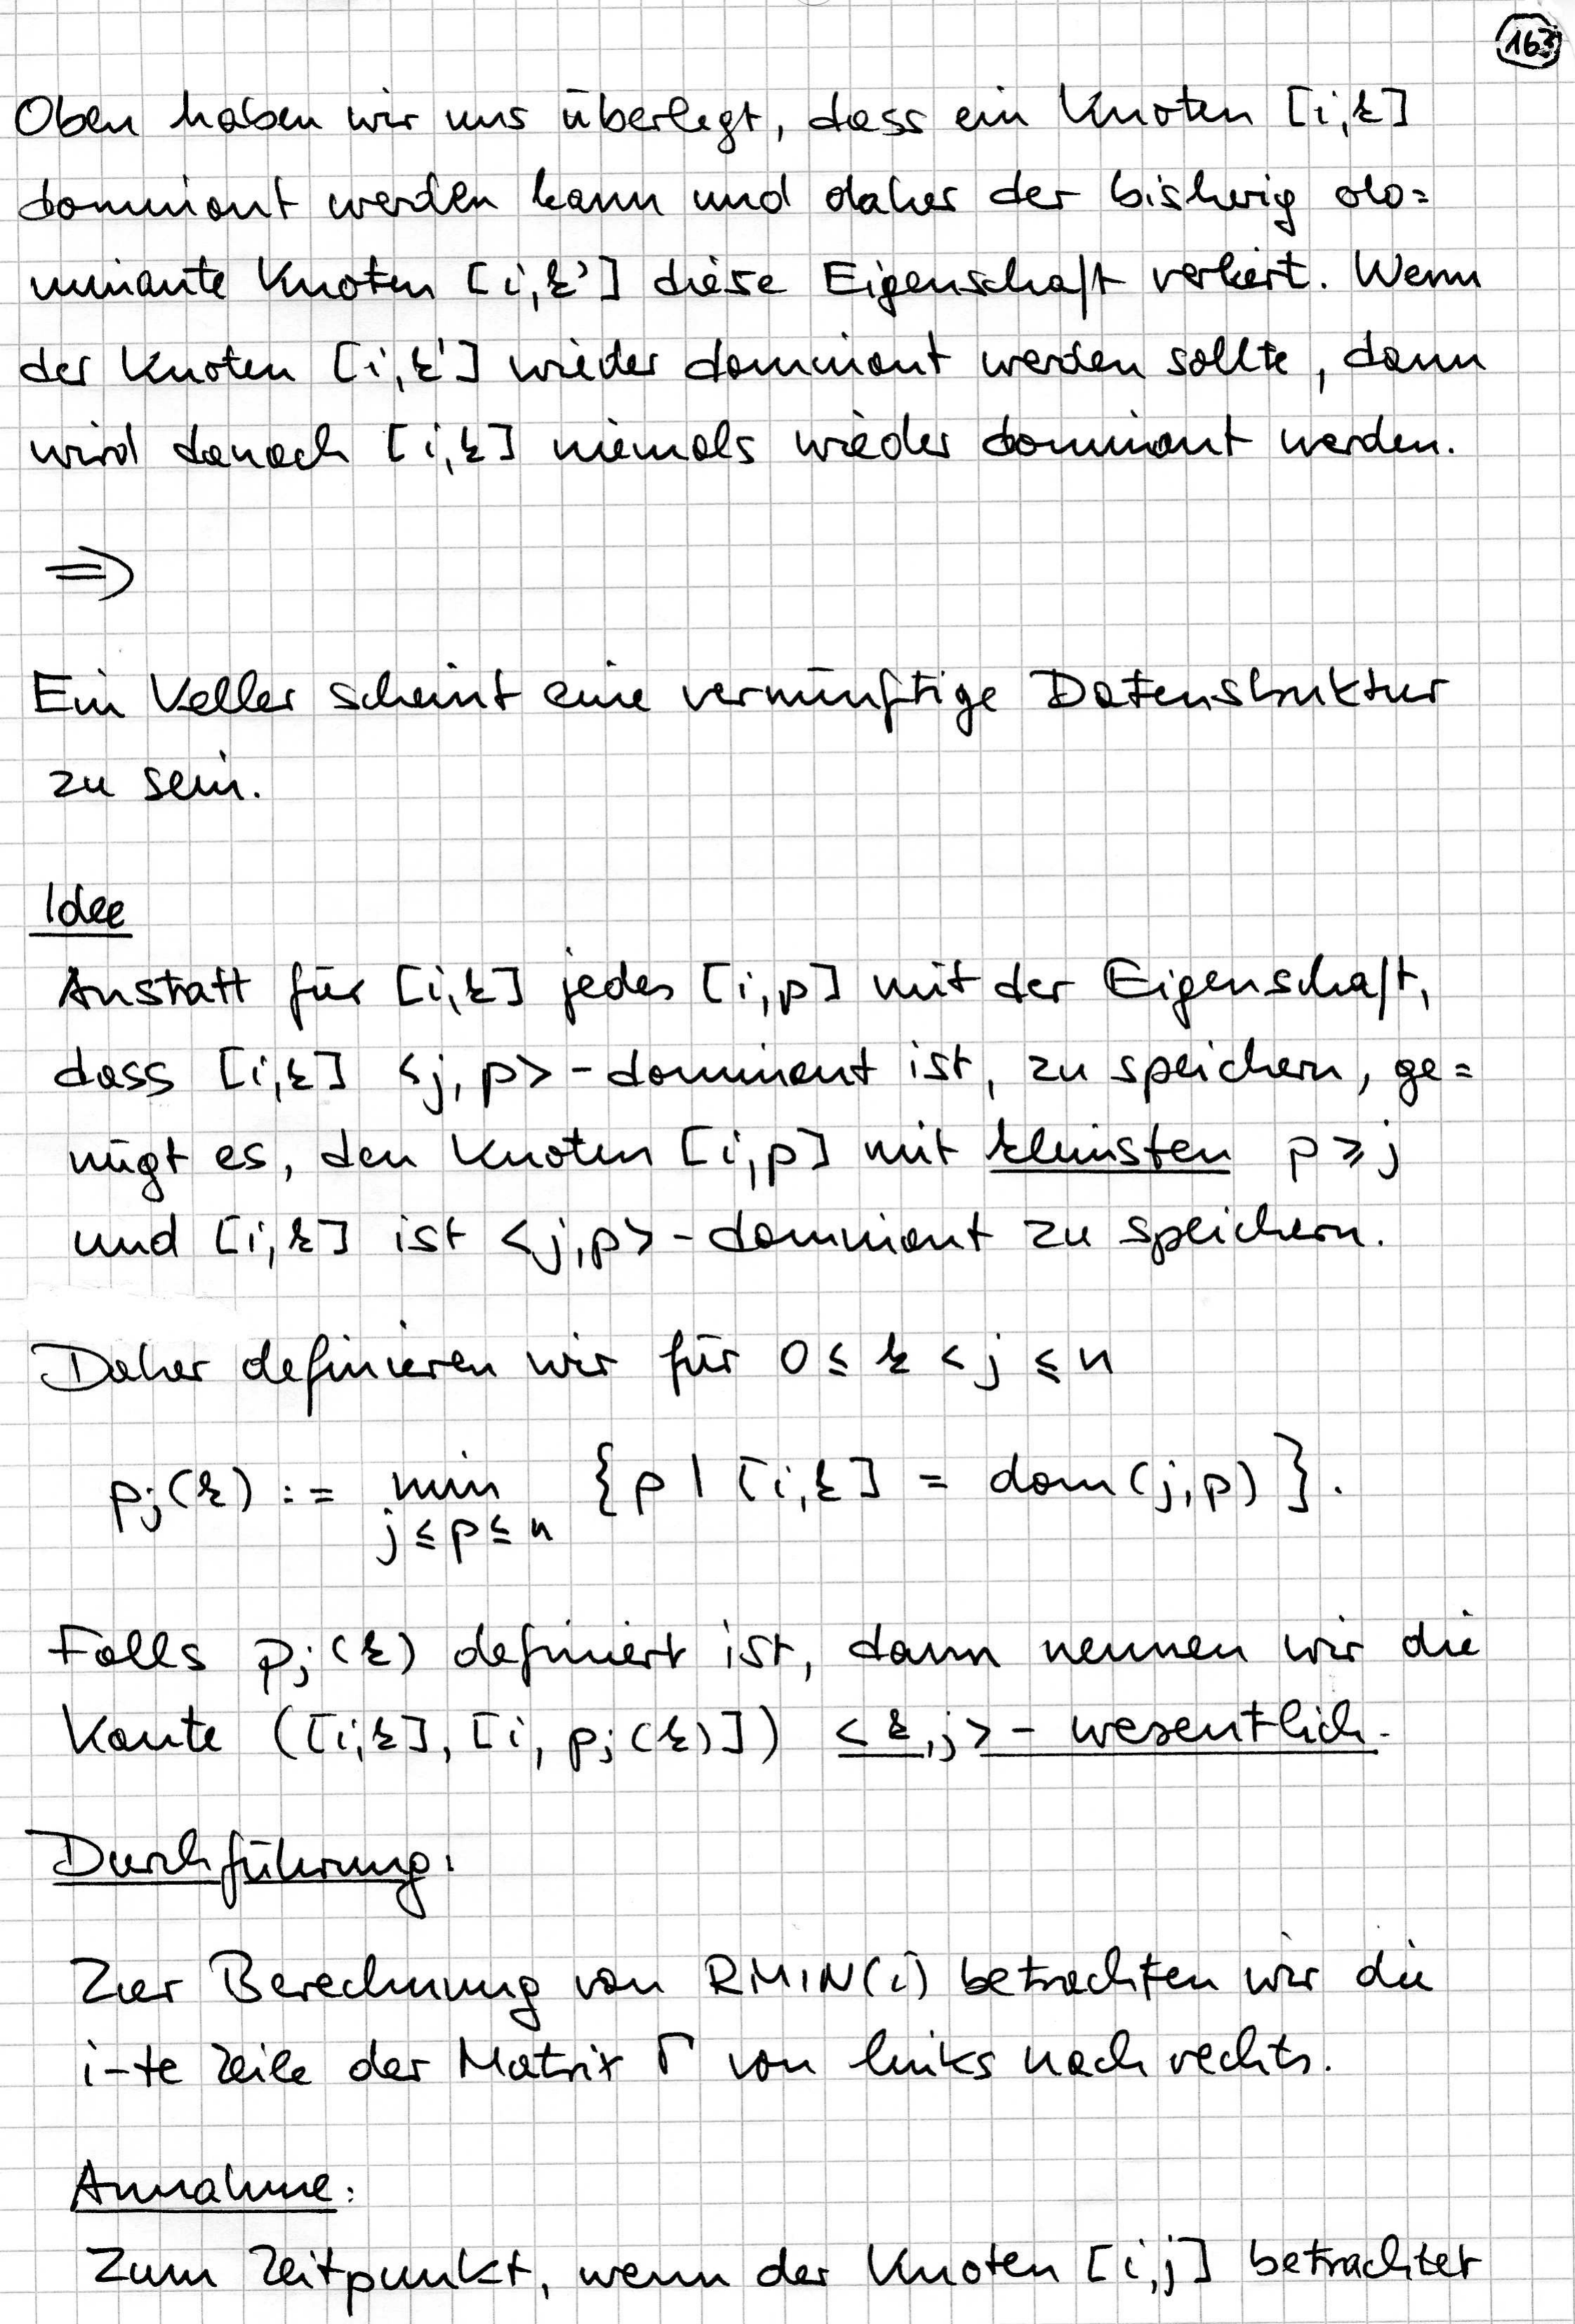 163
Oben haben wir uns überlegt, dass ein Knoten [i,k]
dominant werden kann und daher der bisherig do=
minante Knoten [i,k'] diese Eigenschaft verliert. Wenn
der Knoten [i,k'] wieder dominant werden sollte, dann
wird danach [i,k] niemals wieder dominant werden.
⇒
Ein Keller scheint eine vernünftige Datenstruktur
zu sein.
Idee
Anstatt für [i,k] jedes [i,p] mit der Eigenschaft,
dass [i,k] <j,p>-dominant ist, zu speichern, ge=
nügt es, den Knoten [i,p] mit kleinsten p ≥ j
und [i,k] ist <j,p>-dominant zu speichern.
Daher definieren wir für 0 ≤ k < j ≤ n
pj(k) := min {p | [i,k] = dom(j,p)}.
j≤p≤n
Falls pj(k) definiert ist, dann nennen wir die
Kante ([i,k], [i, pj(k)]) <k,j>-wesentlich.
Durchführung:
Zur Berechnung von RMIN(i) betrachten wir die
i-te Zeile der Matrix Γ von links nach rechts.
Annahme:
Zum Zeitpunkt, wenn der Knoten [i,j] betrachtet